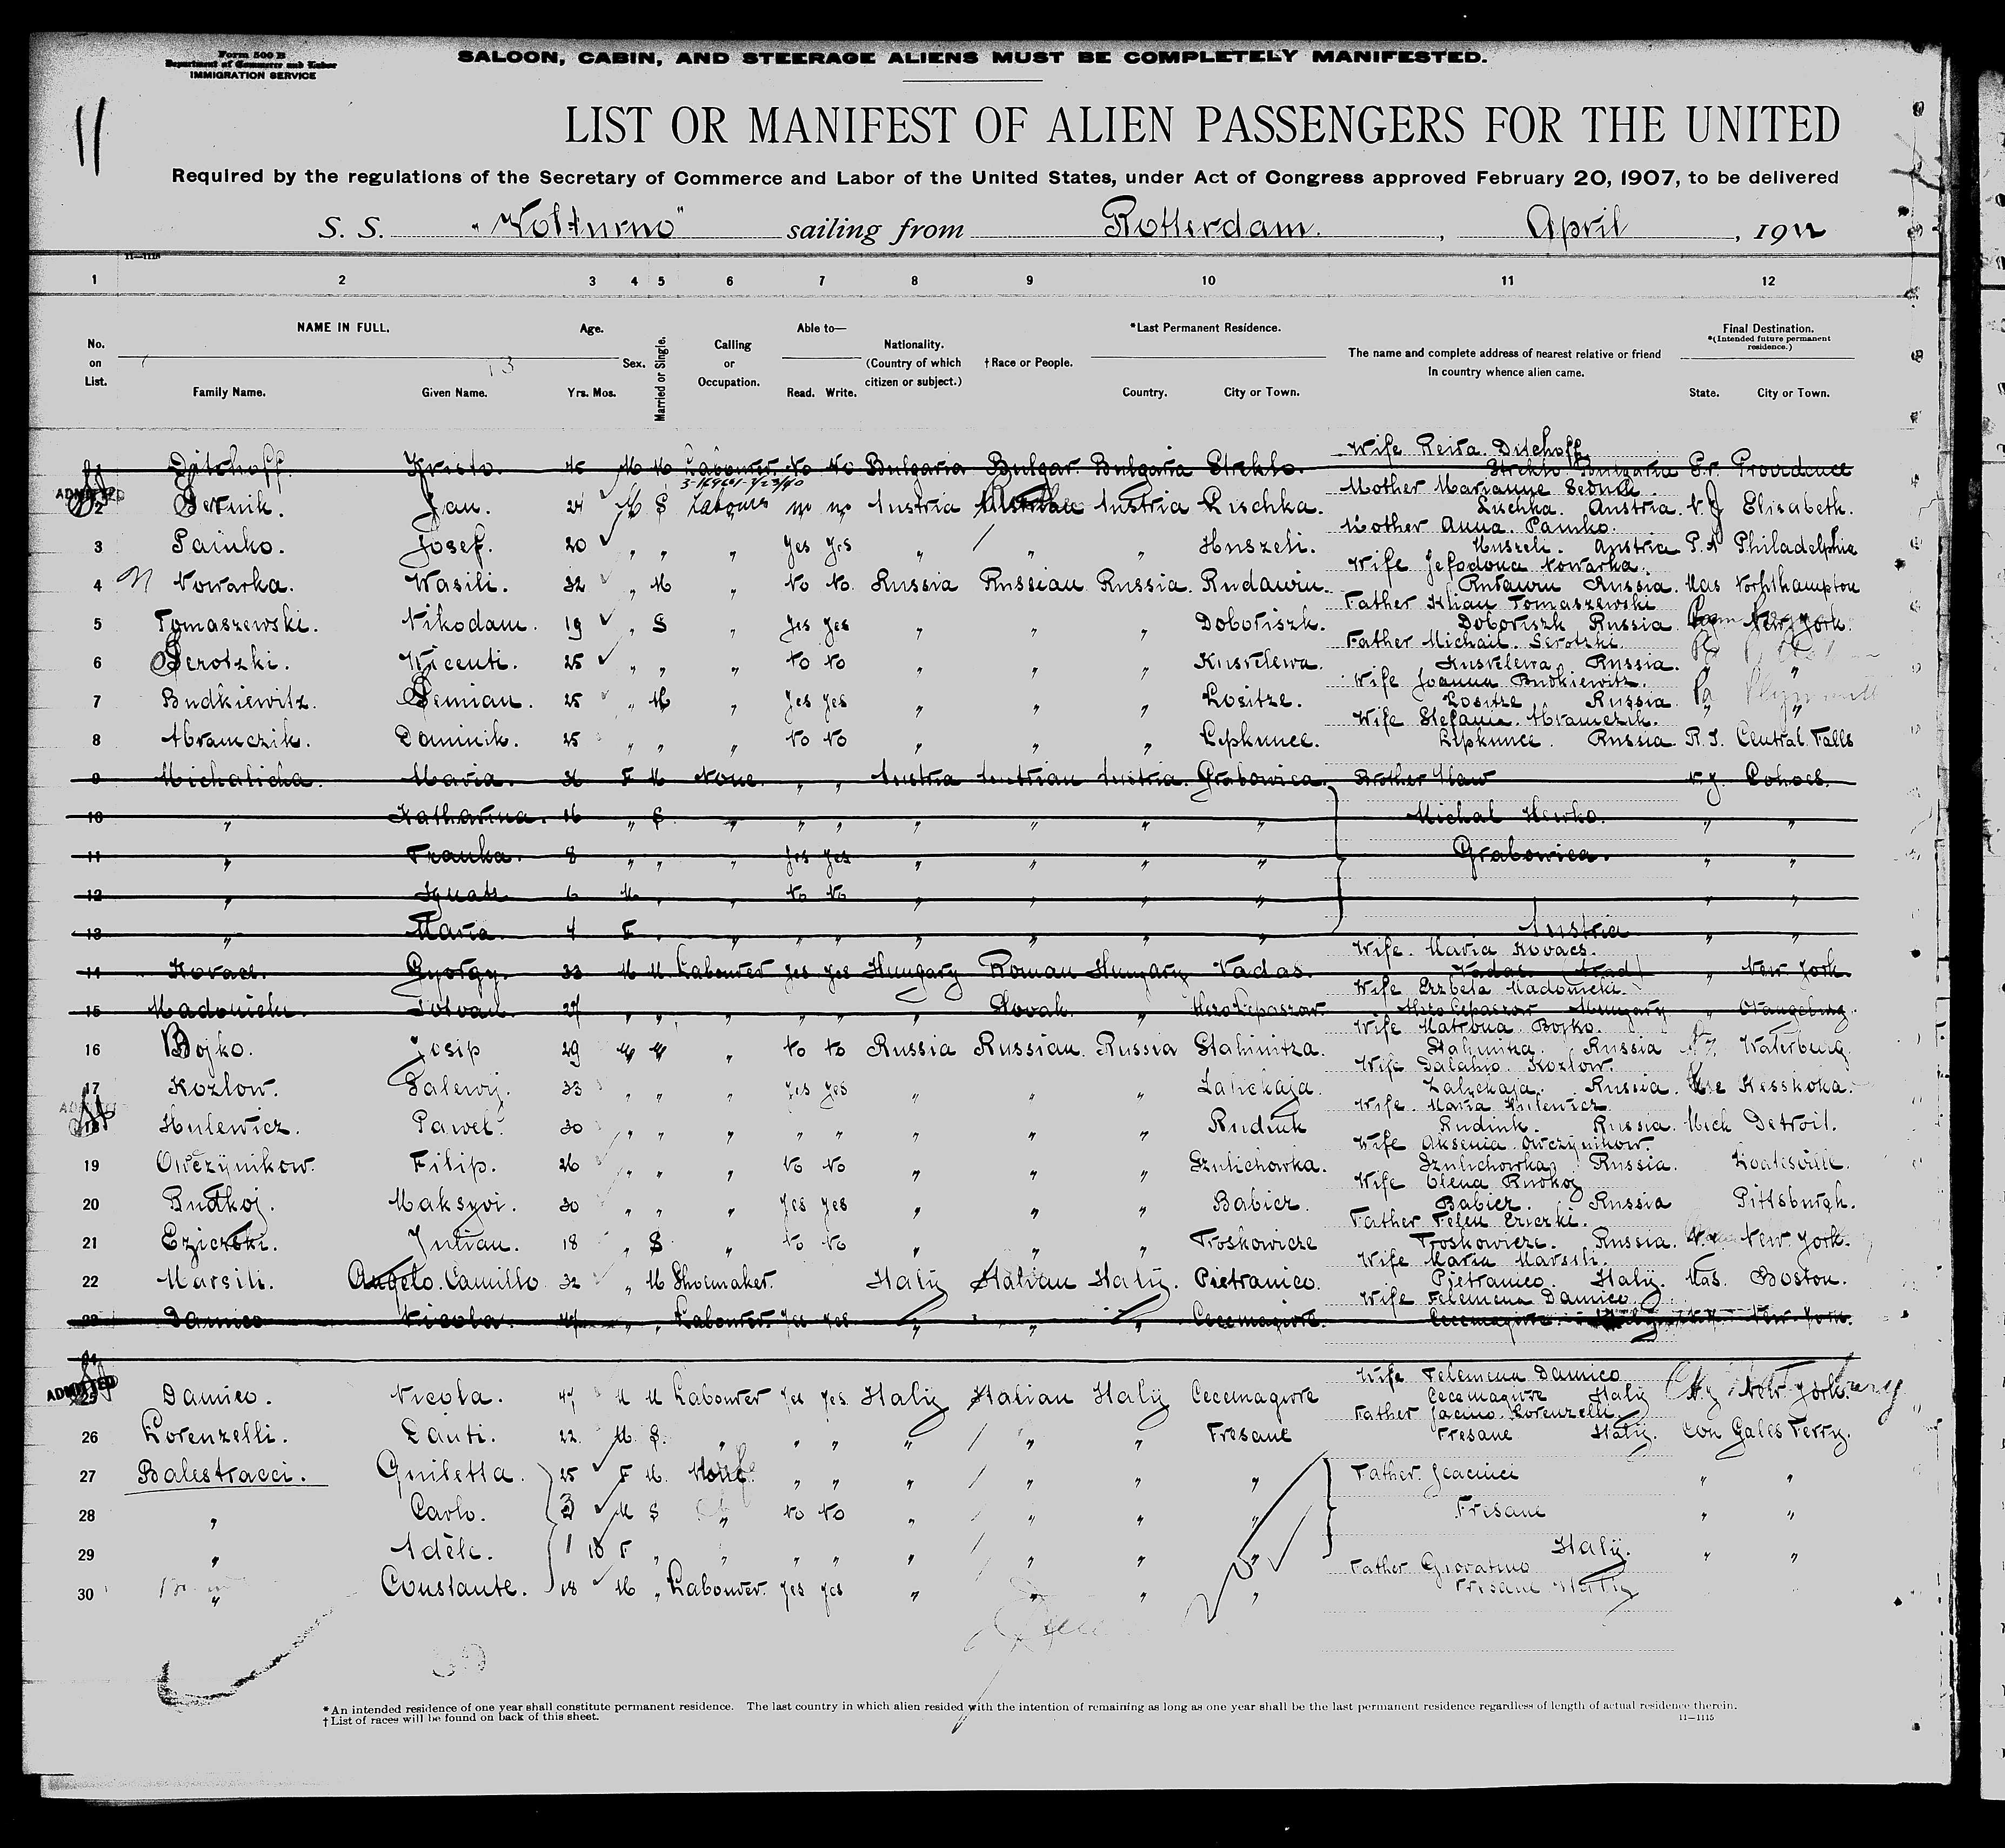 Form 500 B
Department of Commerce and Labor
IMMIGRATION SERVICE
SALOON, CABIN, AND STEERAGE ALIENS MUST BE COMPLETELY MANIFESTED.
11
LIST OR MANIFEST OF ALIEN PASSENGERS FOR THE UNITED
Required by the regulations of the Secretary of Commerce and Labor of the United States, under Act of Congress approved February 20, 1907, to be delivered
S. S. "Volturno" sailing from Rotterdam. , April , 191
11—1115
1 2 3 4 5 6 7 8 9 10 11 12
No. on List. NAME IN FULL. Family Name. Given Name. Age. Yrs. Mos. Sex. Married or Single. Calling or Occupation. Able to— Read. Write. Nationality. (Country of which citizen or subject.) †Race or People. *Last Permanent Residence. Country. City or Town. The name and complete address of nearest relative or friend in country whence alien came. Final Destination. *(Intended future permanent residence.) State. City or Town.
Ditchoff. Kristo. 45 M M Labourer. No No Bulgaria Bulgar. Bulgaria Strekto. Wife Reisa Ditchoff Strekto Bulgaria Pr. Providence
ADMITTED
2 Sernik. Jan. 24 M S Labourer no no Austria Austria Lischka. Mother Marianne Lischka. Austria N. J Elisabeth.
3 Painko. Josef. 20 " " " Yes Yes " " Huszeli. Mother Anna Painko. Huszeli. Austria Pa Philadelphia
4 Nowarka. Wasili. 32 " M " No No. Russia Russian Russia. Rudawin. Wife Jefodona Nowarka. Rudawin Russia. Mas Northampton
5 Tomaszewski. Nikodam. 19 " S " Yes Yes " " " Doboriszk. Father Kilian Tomaszewski Doboriszk Russia New York.
6 Serotzki. Wicenti. 25 " " " No No " " " Kusvelewa. Father Michail. Serotzki. Kusvelewa. Russia. "
7 Budkiewitz. Demian. 25 " M " Yes Yes " " " Lositze. Wife Joanna Budkiewitz. Lositze Russia Pa Plymouth
8 Abramczik. Dominik. 25 " " " No No " " " Lipkunce. Wife Stefania. Abramczik. Lipkunce. Russia. R. I. Central Falls
9 Michalicha. Maria. 36 F M None. " " Austria Austrian Austria. Grabowica. Brother Maw N. Y. Cohoes.
10 " Katharina. 16 " S " " " " " " " Michal Hewko. " "
11 " Franka. 8 " " Yes Yes " " " " Grabowica. " "
12 " Ignatz 6 M " " No No " " " " " "
13 " Maria. 4 F " " " " " " " " Austria " "
14 Kovacs. György. 33 M M. Labourer Yes Yes Hungary Roman Hungary Vadas. Wife. Maria Kovacs. Vadas. (Arad) " New York.
15 Madonicki. Istvan. 27 " " " " " " Slovak. " Wife Erzbeta Madonicki. Hungary " Orangeburg
16 Bojko. Josip 29 M M " No No Russia Russian. Russia Stahinitza. Wife Matrona. Bojko. Stahinitza. Russia Waterburg.
17 Kozlow. Salewij. 33 " " " Yes Yes " " " Zalickaja. Wife Kozlow. Zalickaja. Russia. Kesskoka.
18 Hulewicz. Pawel. 30 " " " " " " " " Rudink Wife. Maria Hulewicz. Rudink. Russia. Mich Detroit.
19 Owczynikow. Filip. 26 " " " No No " " " Szulichowka. Wife Aksenia. Owczynikow. Szulichowka. Russia. Koatesville.
20 Rudkoj. Maksym. 30 " " " Yes Yes " " " Babicz. Wife Olena Rudkoj Babicz. Russia Pittsburgh.
21 Eziczki. Julian. 18 " S " No No " " " Troskowicze Father Felen Eziczki. Troskowicze. Russia. New York.
22 Marsili. Angelo. Camillo. 32 " M Shoemaker. Italy Italian Italy. Pietranico. Wife Maria Marsili. Pietranico. Italy. Mas. Boston.
23 Damico Nicola. 47 " " Labourer. Yes Yes " " " Cecemagiore. Wife Felemena Damico. Cecemagiore. New York.
ADMITTED
25 Damico. Nicola. 47 M M Labourer Yes Yes. Italy Italian Italy Cecemagiore Wife Felemena Damico Cecemagiore Italy N.y New York.
26 Lorenzelli. Danti. 22 M. S. " " " " " " Fresane Father Jacino. Lorenzelli. Fresane Italy. Con Gales Ferry.
27 Balestracci. Guiletta. 25 F M. None. " " " " " " Father. Jeacinci " "
28 " Carlo. 3 M S " No No " " " " Fresane " "
29 " Adèle. 1 10 F " " " " " " " " Italy. " "
30 " Constante. 18 M " Labourer. Yes Yes " " " " Father Giovatino Fresane Italy
*An intended residence of one year shall constitute permanent residence. The last country in which alien resided with the intention of remaining as long as one year shall be the last permanent residence regardless of length of actual residence therein.
†List of races will be found on back of this sheet.
11—1115